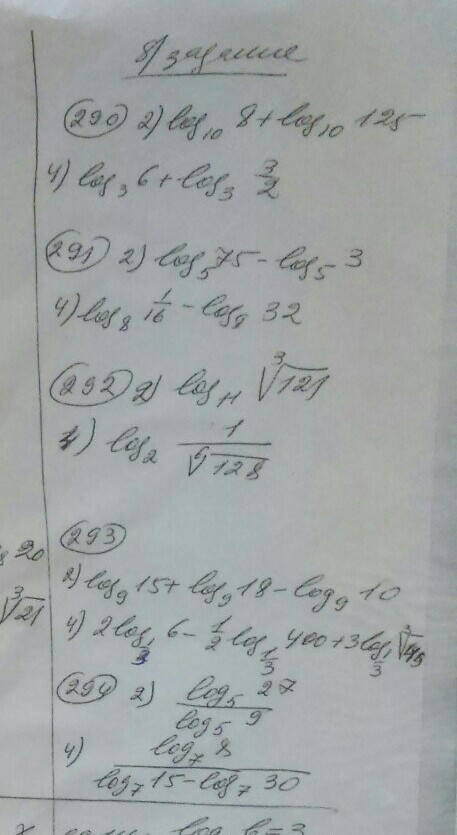 8) задание
290 2) log₁₀ 8 + log₁₀ 125
4) log₃ 6 + log₃ 3/2
291 2) log₅ 75 - log₅ 3
4) log₈ 1/16 - log₈ 32
292 2) log₁₁ ³√121
4) log₂ 1/⁶√128
293
2) log₉ 15 + log₉ 18 - log₉ 10
4) 2log₁/₃ 6 - 1/2 log₁/₃ 400 + 3log₁/₃ ³√45
294 2) log₅ 27 / log₅ 9
4) log₇ 8 / log₇ 15 - log₇ 30
20
³√21